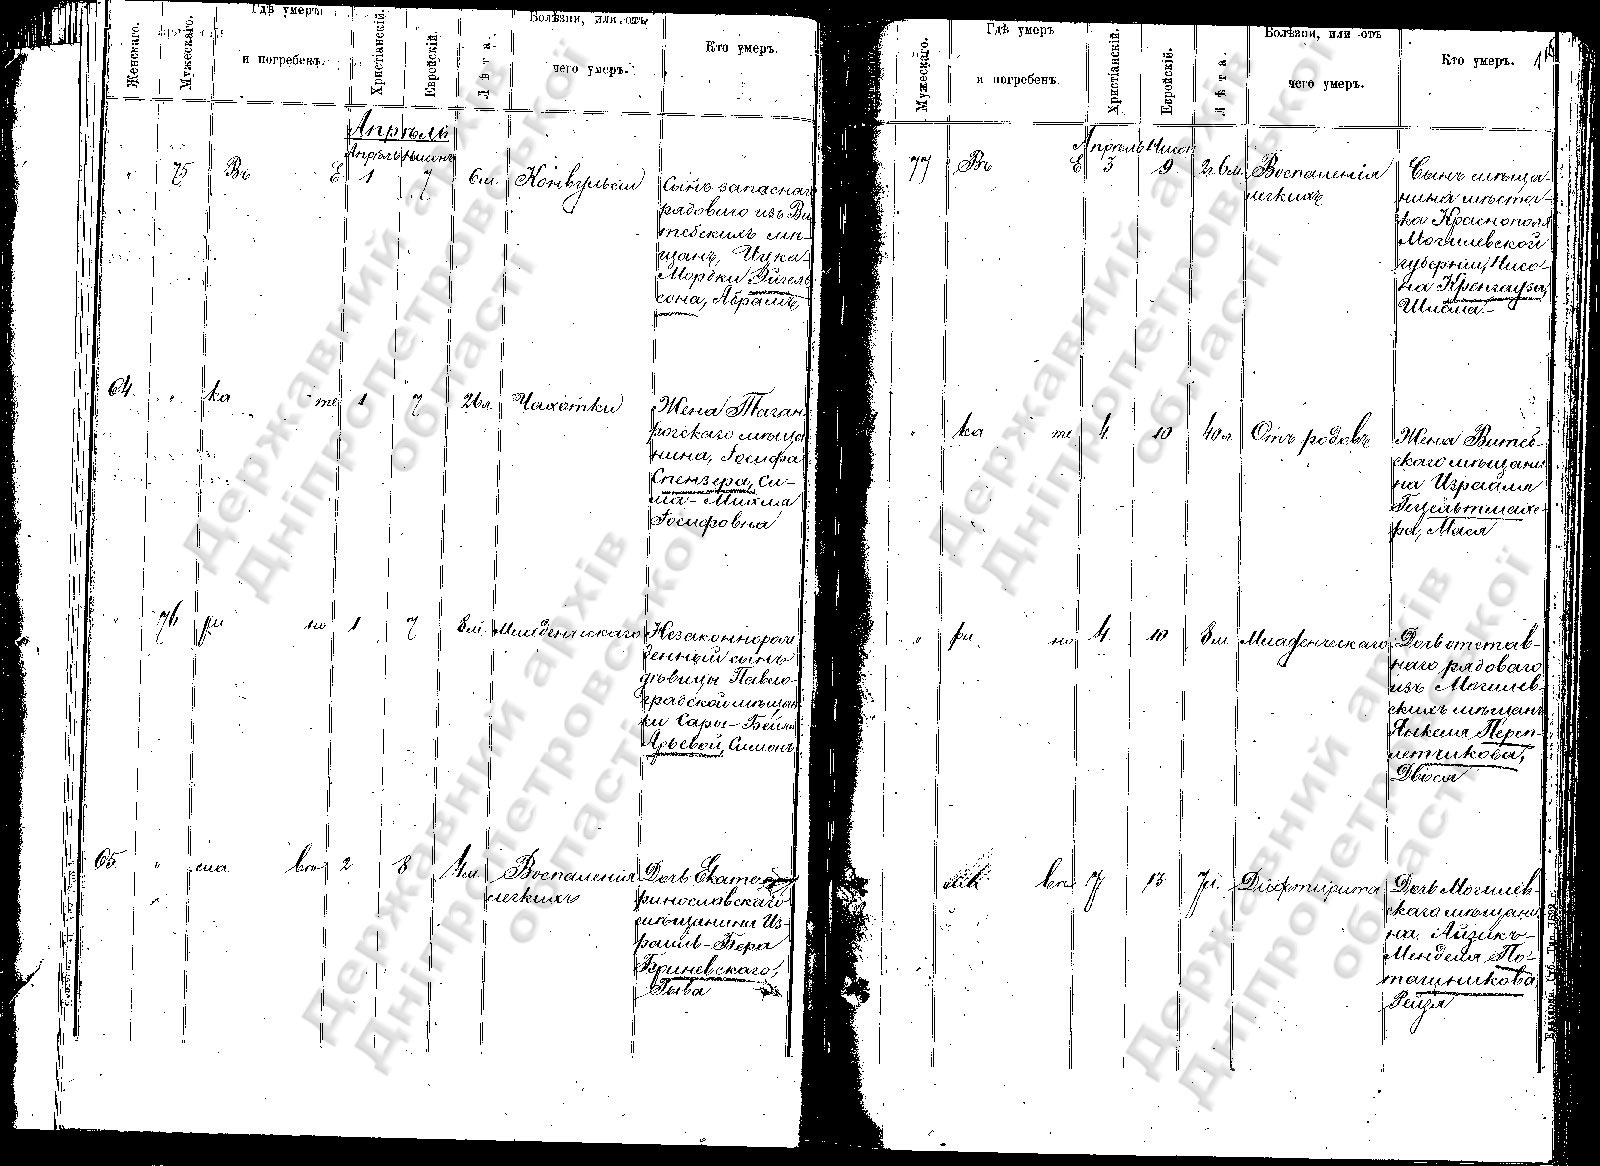 Женскаго.
Мужескаго.
Гдѣ умеръ
и погребенъ.
Христіанскій.
Еврейскій.
Лѣта.
Болѣзни, или отъ
чего умеръ.
Кто умеръ.
Апрѣль
Апрѣль Нисанъ
" 75 Въ Е 1 7 6 м. Конвульсіи
Сынъ запаснаго
рядового изъ Ви
тебскихъ мѣ-
щанъ, Ицка-
Мордки Эйгель
сона, Абрамъ,
64. " ка те 1 7 26 л. Чахотки
Жена Таган
рогскаго мѣща
нина, Іосифа
Спензера, Си-
ма-Михля
Іосифовна
" 76 ри но 1 7 8 м. Младенческаго
Незаконнорож
денный сынъ
дѣвицы Павло-
градской мѣщан
ки Сары-Бейли
Арьевой, Симонъ
65 " сла въ 2 8 4 м. Воспаленія
легкихъ
Дочь Екате
ринославскаго
мѣщанина Из-
раиль-Бера
Бриневскаго,
Рыва
Мужескаго.
Гдѣ умеръ
и погребенъ.
Христіанскій.
Еврейскій.
Лѣта.
Болѣзни, или отъ
чего умеръ.
Кто умеръ.
Апрѣль Нисан
77 Въ Е 3 9 2 г. 6 м. Воспаленія
легкихъ
Сынъ мѣща-
нина мѣстеч-
ка Краснополя
Могилевской
губерніи, Нисо-
на Кренгауза,
Шлема.-
" ка те 4 10 40 л. Отъ родовъ
Жена Витеб-
скаго мѣщани
на Израиля
Гецельтмахе-
ра, Мася
" ри но 4 10 8 м. Младенческаго
Дочь отстав-
наго рядоваго
изъ Могилев-
скихъ мѣщанъ
Янкеля Переп-
летчикова,
Двося
въ 7 13 Дифтирита
Дочь Могилев-
скаго мѣщани
на, Айзикъ-
Менделя По-
ташникова
Рейзя
Державний архів
Дніпропетровської
області
Державний архів
Дніпропетровської
області
Державний архів
Дніпропетровської
області
Державний архів
Дніпропетровської
області